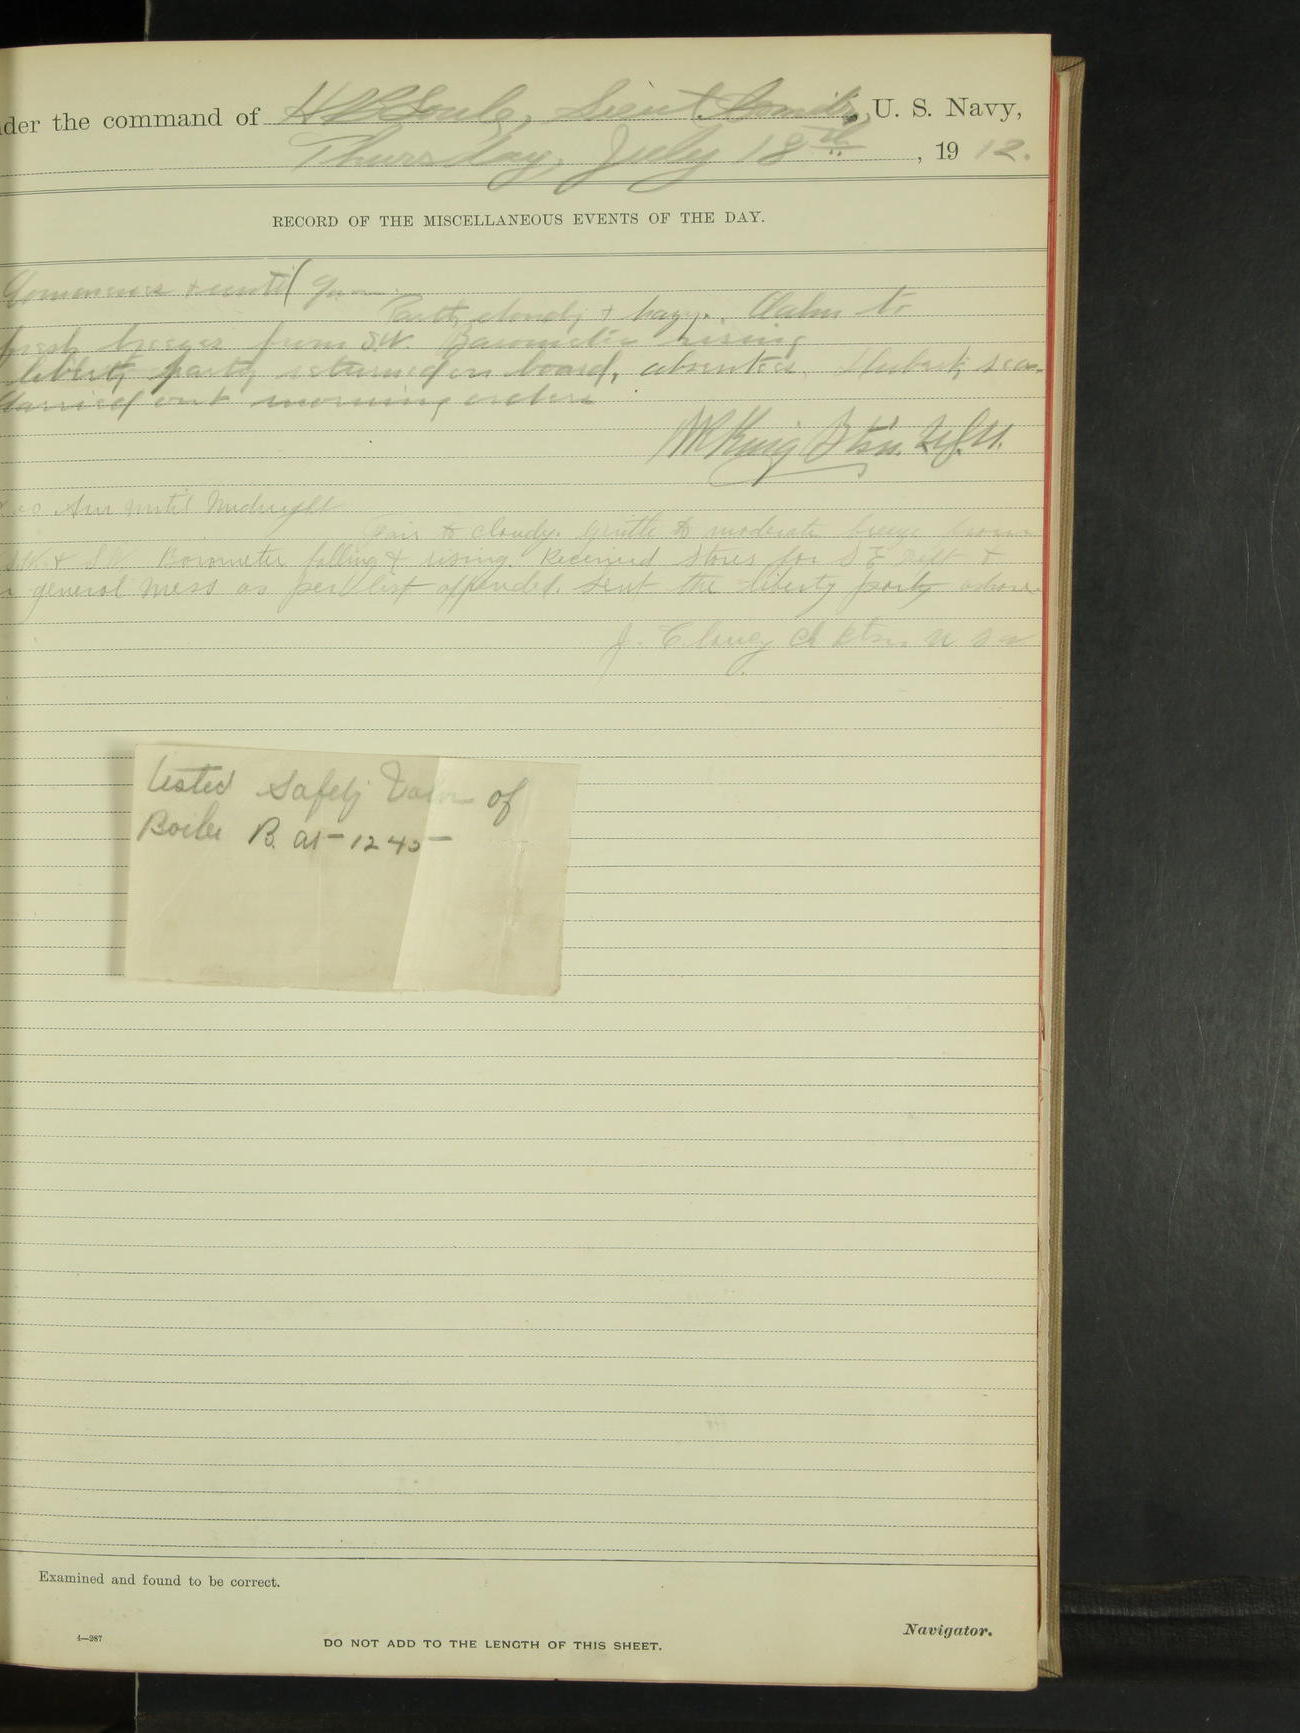 der the command of H P Soule, Lieut. Comdr., U. S. Navy,
Thursday, July 18th, 1912.
RECORD OF THE MISCELLANEOUS EVENTS OF THE DAY.
Commences & until 9 am.
Partly cloudy & hazy. Calm to
fresh breezes from SW. Barometer rising
liberty party returned on board, absentees,
Carried out morning orders
Btsn. U.S.N.
Am until Midnight
Fair to cloudy. Gentle to moderate breeze from
S.W. Barometer falling & rising. Received stores for S E Dept &
general mess as per list appended. sent the liberty party ashore.
J. Clancy Ch Btsn U S N
tested Safety Valve of
Boiler B. at - 12 45 -
Examined and found to be correct.
Navigator.
4—287
DO NOT ADD TO THE LENGTH OF THIS SHEET.